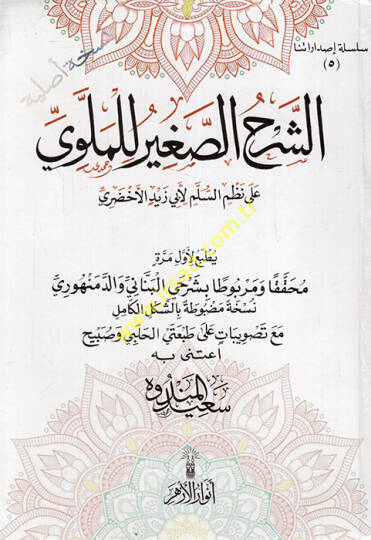 سلسلة إصداراتنا
(٥)
نسخة أصلية
الشَّرْحُ الصَّغِيرُ لِلْمَلَّوِيِّ
عَلَى نَظْمِ السُّلَّمِ لِأَبِي زَيْدٍ الأَخْضَرِيِّ
يُطْبَعُ لِأَوَّلِ مَرَّةٍ
مُحَقَّقًا وَمَرْبُوطًا بِشَرْحَيِ الْبَنَّانِيِّ وَالدَّمَنْهُورِيِّ
نُسْخَةٌ مَضْبُوطَةٌ بِالشَّكْلِ الكَامِلِ
مَعَ تَصْوِيبَاتٍ عَلَى طَبْعَتَيِ الحَلَبِيِّ وَصُبَيْح
اعتنى به
سعيد المندوه
أنوار الأزهر